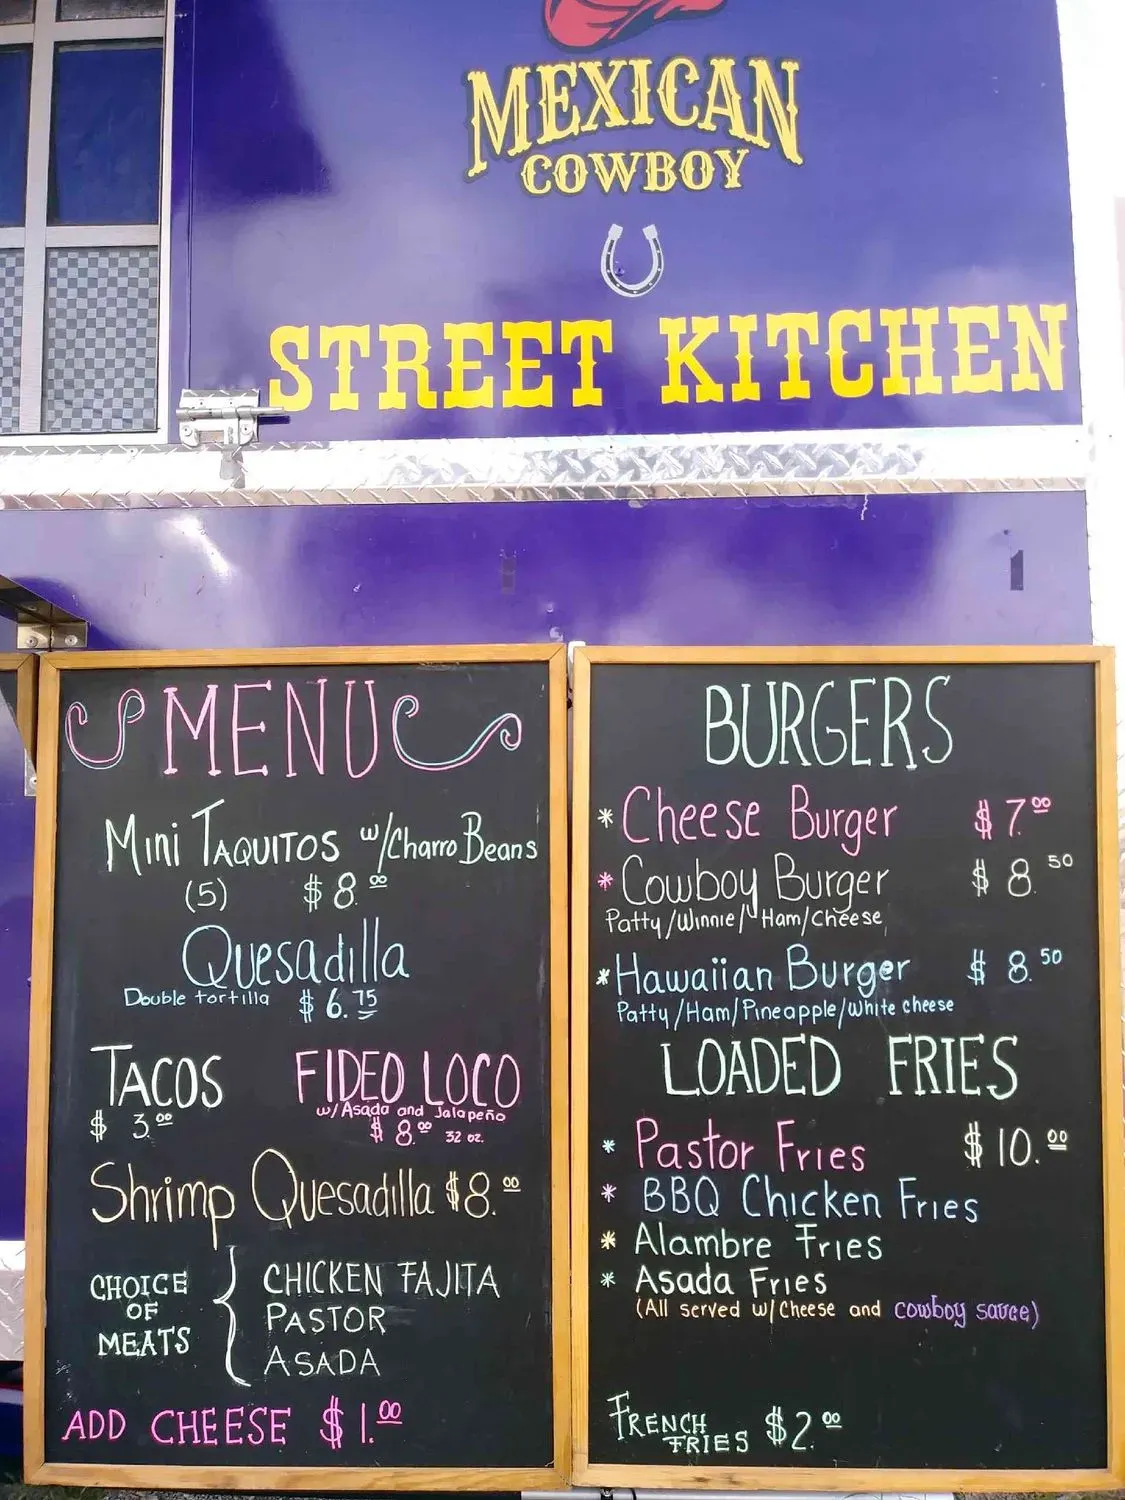 MEXICAN
COWBOY
STREET KITCHEN
MENU
MINI TAQUITOS w/Charro Beans
(5) $8.00
Quesadilla
Double tortilla $6.75
TACOS
$3.00
FIDEO LOCO
w/Asada and Jalapeño
$8.00 32 oz.
Shrimp Quesadilla $8.00
CHOICE
OF
MEATS
CHICKEN FAJITA
PASTOR
ASADA
ADD CHEESE $1.00
BURGERS
* Cheese Burger $7.00
* Cowboy Burger $8.50
Patty/Winnie/Ham/Cheese
* Hawaiian Burger $8.50
Patty/Ham/Pineapple/White cheese
LOADED FRIES
* Pastor Fries $10.00
* BBQ Chicken Fries
* Alambre Fries
* Asada Fries
(All served w/Cheese and cowboy sauce)
FRENCH
FRIES $2.00